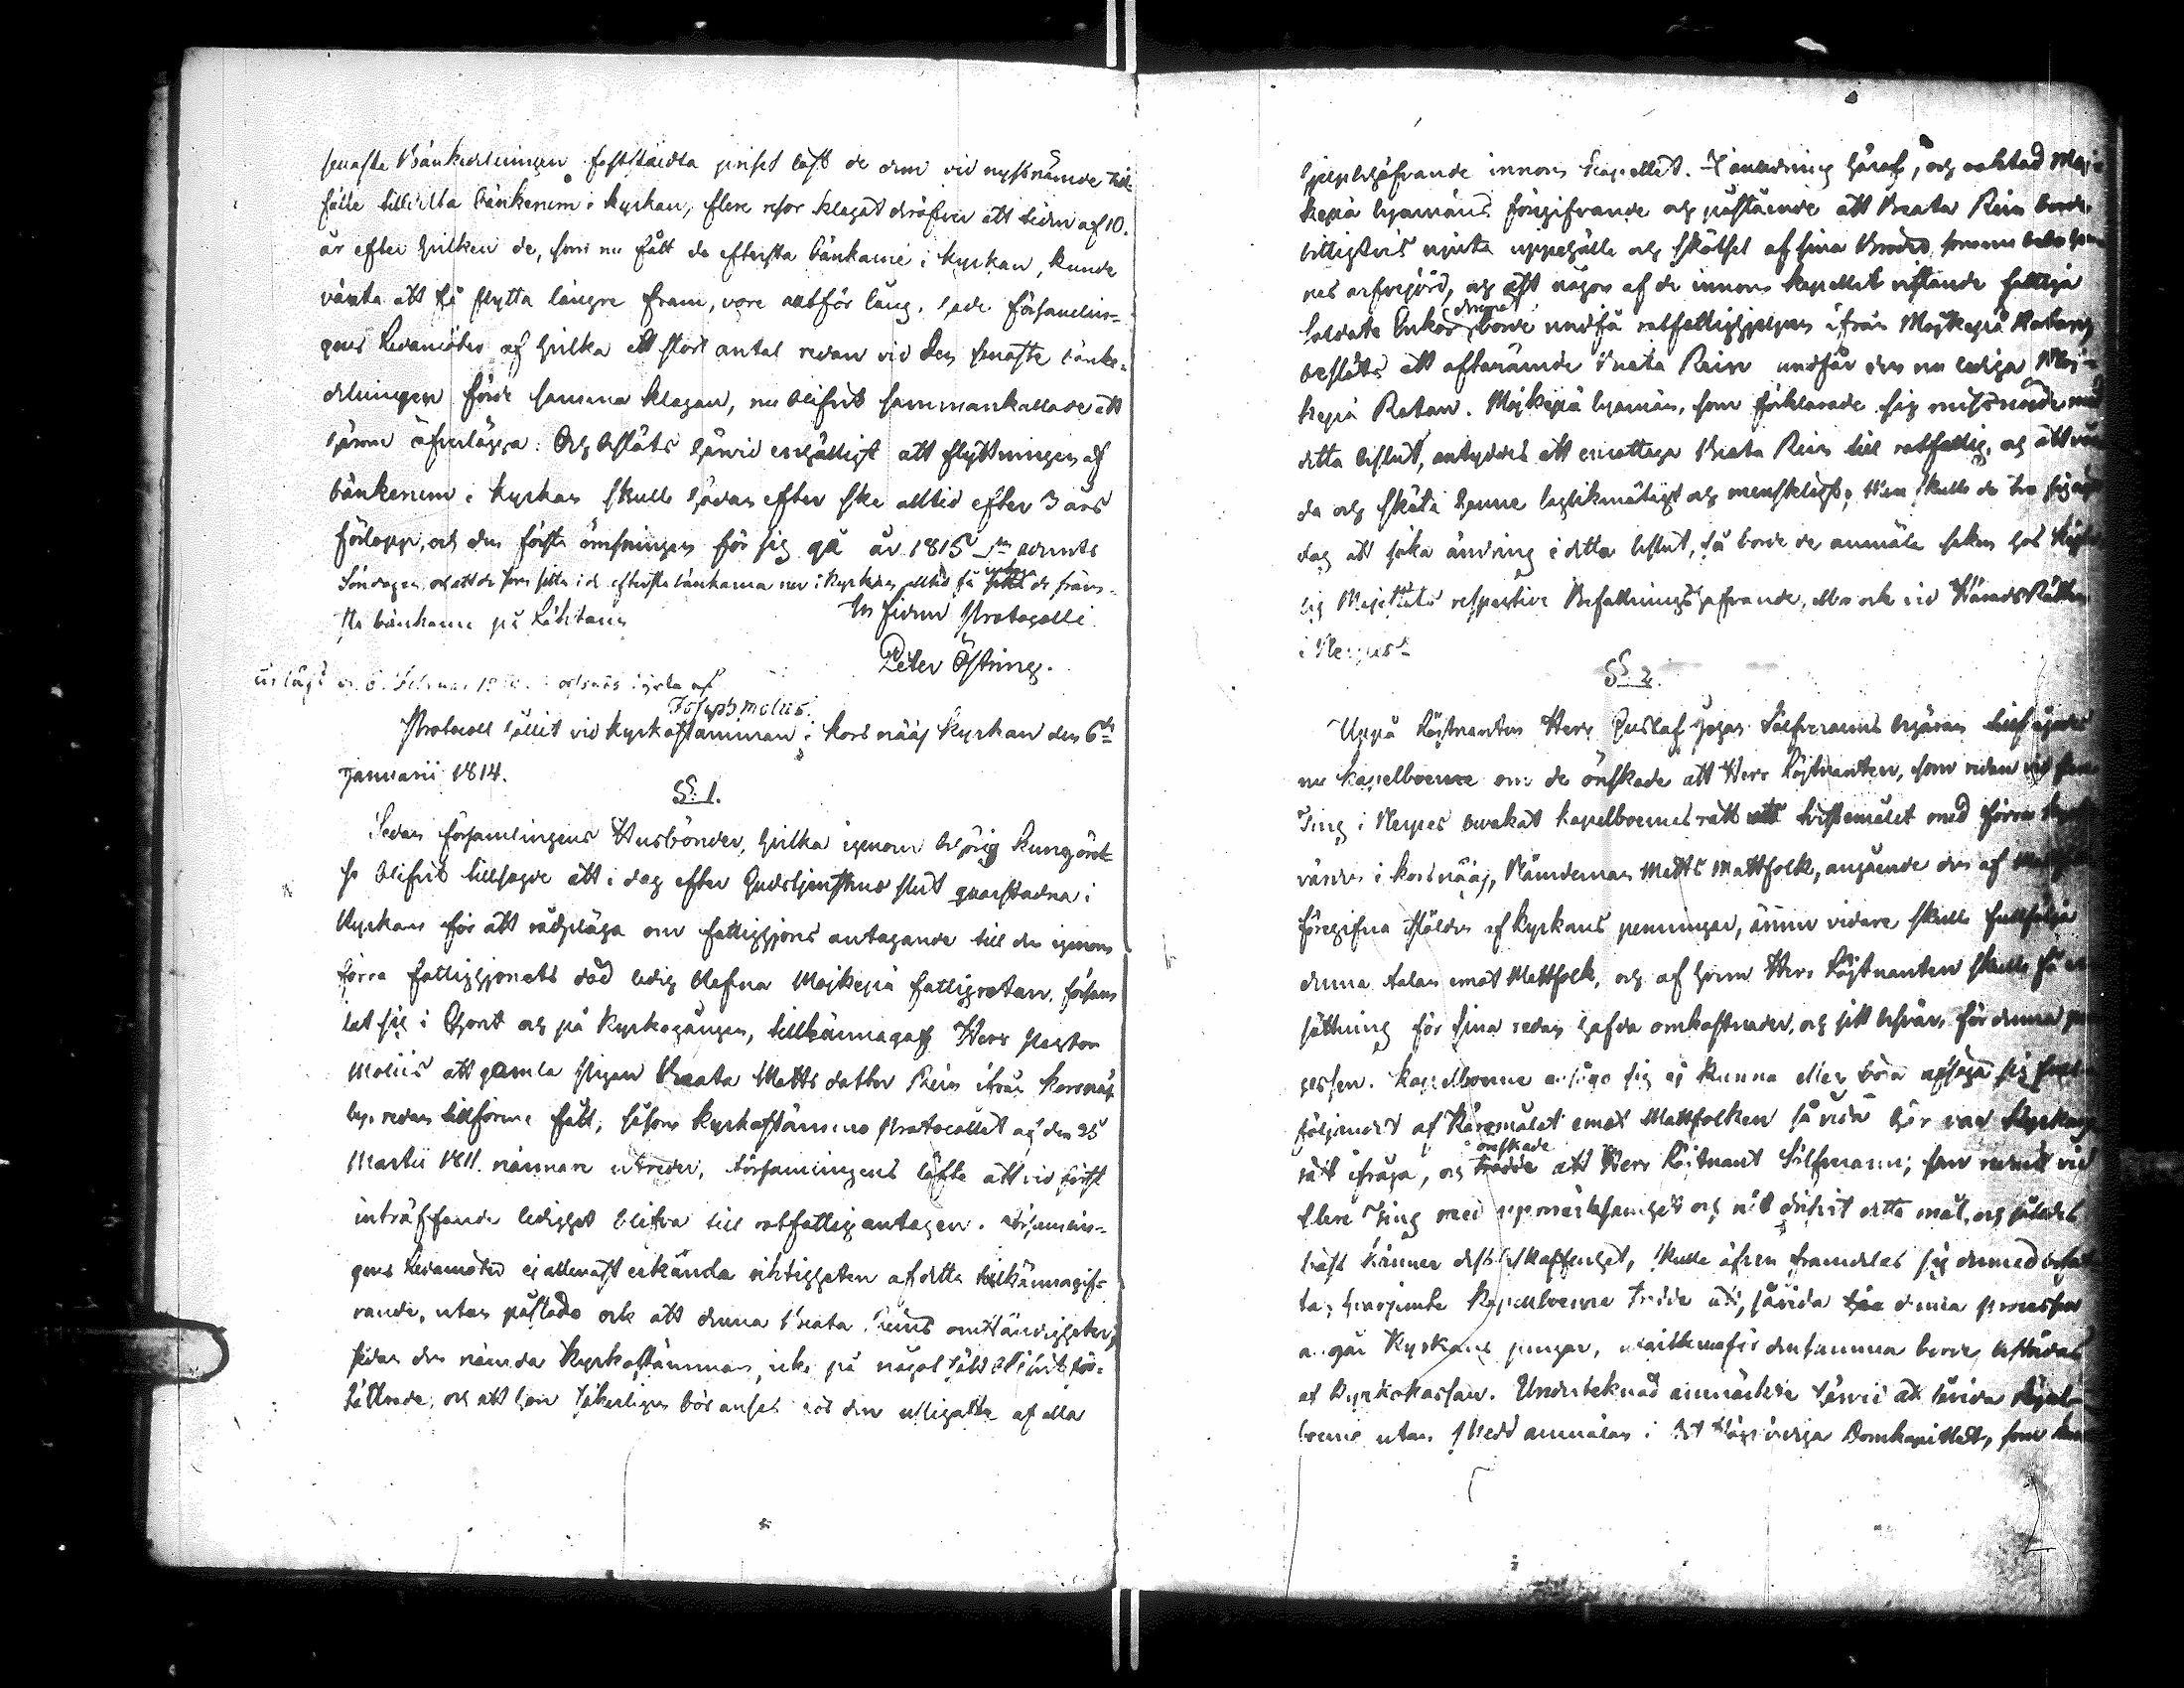 senaste Bänkdelningen faststäldta priset löst de dem vid nyssnämde till
fälle tilldelta bänkerum i kyrkan, flere resor klagat deröfver att tiden af 10.
år efter hvilken de, som nu fått de eftersta bänkarne i kyrkan, kunde
vänta att få flytta längre fram, vore alltför lång. hade Församlin=
gens Ledamöter af hvilka ett stort antal redan vid den senaste bänke=
delningen förde samma klagan, nu blifvit sammankallade att
härom öfverlägga: Och beslöts härvid enhälligt att flyttningen af
bänkerum i kyrkan skulle hädan efter ske alltid efter 3 års
förlopp, och den första ömsningen för sig gå år 1815 1sta advents
Söndagen, och att de som sitta i de eftersta bänkarna ner i kyrkan alltid få de främ-
sta bänkarne på Läktaren
In fidem Protocolli
Peter Östring.
Upläst d. 6 Februar 1814 i Korsnäs kyrka af
Joseph Molin.
Protocoll hållit vid kyrkostämman i Korsnääs kyrkan den 6te
Januarii 1814.
§. 1.
Sedan församlingens Husbönder, hvilka igenom behörig kungörel-
se blifvit tillsagde att i dag efter Gudstjenstens slut qvarstadna i
kyrkan för att rådpläga om fattighjons antagande till den igenom
förra fattighjonets död ledig blefna Mojkepä fattigrotan, försam
lat sig i Choret och på kyrkogången, tillkännagaf Herr Pastor
Moliis att gamla pigan Beata Matts dotter Rein ifrån Korsnäs
by, redan tillförne fått, såsom kyrkostämmo Protocollet af den 25
Martii 1811. närmare utreder, församlingens löfte att vid först
inträffande ledighet blifva till rotfattig antagen. Församlin-
gens Ledamöter ej allenast erkända riktigheten af detta tillkännagif-
vande, utan påstodo ock att denna Beata Reins omständigheter,
sedan den nämda kyrkostämman, icke på något sätt blifvit för-
bättrade, och att hon säkerligen bör anses för den uslligaste af alla
hjelpbehöfvande innom Capellet. I anledning häraf, och oaktad Moj-
kepä byamäns föregifvande och påstående att Beata Rein borde
billigtvis njuta uppehälle och skötsel af sina Bröder,
och att någon af de innom kapellet vistande fattiga
Soldate Enkor borde undfå rotfattighjelpen ifrån Mojkepä Rotan,
beslöts att oftanämde Beata Rein undfår den nu lediga Moj-
kepä Rotan. Mojkepä byamän, som förklarade sig missnöjde med
detta beslut, antyddes att emottaga Beata Rein till rotfattig, och att vår
da och sköta henne lagligmätigt och menskligt; Men skulle de
att söka ändring i detta beslut, så borde de anmäla saken hos
Majestäts respective Befallningshafvande, eller ock vid HäradsRätten
i Nerpes.
§ 2.
Uppå Löjtnanten Herr Gustaf Johan Silfverarms begäran tillfrågades
nu kapelboerne om de önskade att Herr Löjtnanten, som redan
Ting i Nerpes bevakat kapelboernes rätt tvistemålet med förre
värden i Korsnääs, Nämdeman Matts Mattfolk, angående den af
föregifna stölden af kyrkans penningar, ännu vidare skulle fullfölja
denna talan emot Mattfolk, och af honom Herr Löjtnanten skulle få er
sättning för sina redan hafda omkostnader, och sitt besvär, för denna pro
cessen. Kapelboerne ansågo sig ej kunna eller böra afsäga sig
följandet af käromålet emot Mattfolken så vida här var kyrkans
rätt ifråga, och önskade att Herr Löjtnant Silfverarm; som redan vid
flere Ting med uppmärksamhet och nit drifvit detta mål, och således
bäst känner dess beskaffenhet, skulle äfven framdeles sig dermed befat
ta; hvarjemte kapelboerne trodde att, såvida denna process
angår kyrkans pengar, omkostnaderne för densamma borde bestridas
af kyrkokassan. Undertecknad anmärkte härvid att såvida kapel-
boerne utan skedd anmälan i Det Högvördiga Domkapittlet, som